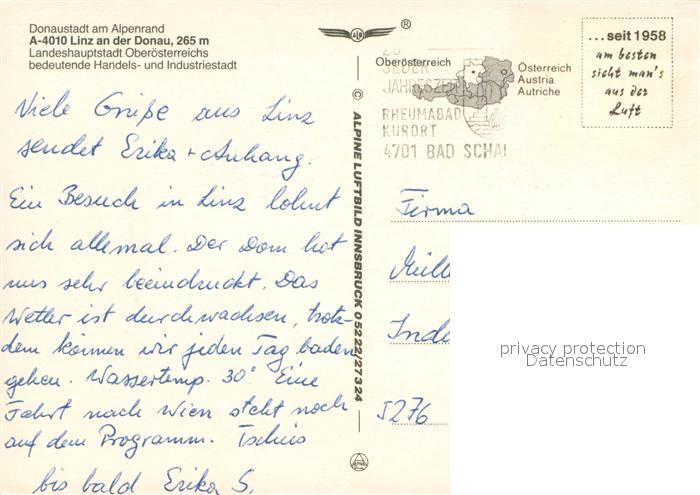 Donaustadt am Alpenrand
A-4010 Linz an der Donau, 265 m
Landeshauptstadt Oberösterreichs
bedeutende Handels- und Industriestadt
Viele Grüße aus Linz
sendet Erika + Anhang.
Ein Besuch in Linz lohnt
sich allemal. Der Dom hat
uns sehr beeindruckt. Das
Wetter ist durchwachsen, trotz-
dem können wir jeden Tag baden
gehen. Wassertemp. 30° Eine
Fahrt nach Wien steht noch
auf dem Programm. Tschüs
bis bald Erika S.
© ALPINE LUFTBILD INNSBRUCK 05222/27324
®
Oberösterreich
Österreich
Austria
Autriche
ZU
JEDER
JAHRESZEIT
RHEUMABAD
KURORT
4701 BAD SCHAL
...seit 1958
am besten
sieht man's
aus der
Luft
Firma
Mill
Indu
5276
privacy protection
Datenschutz